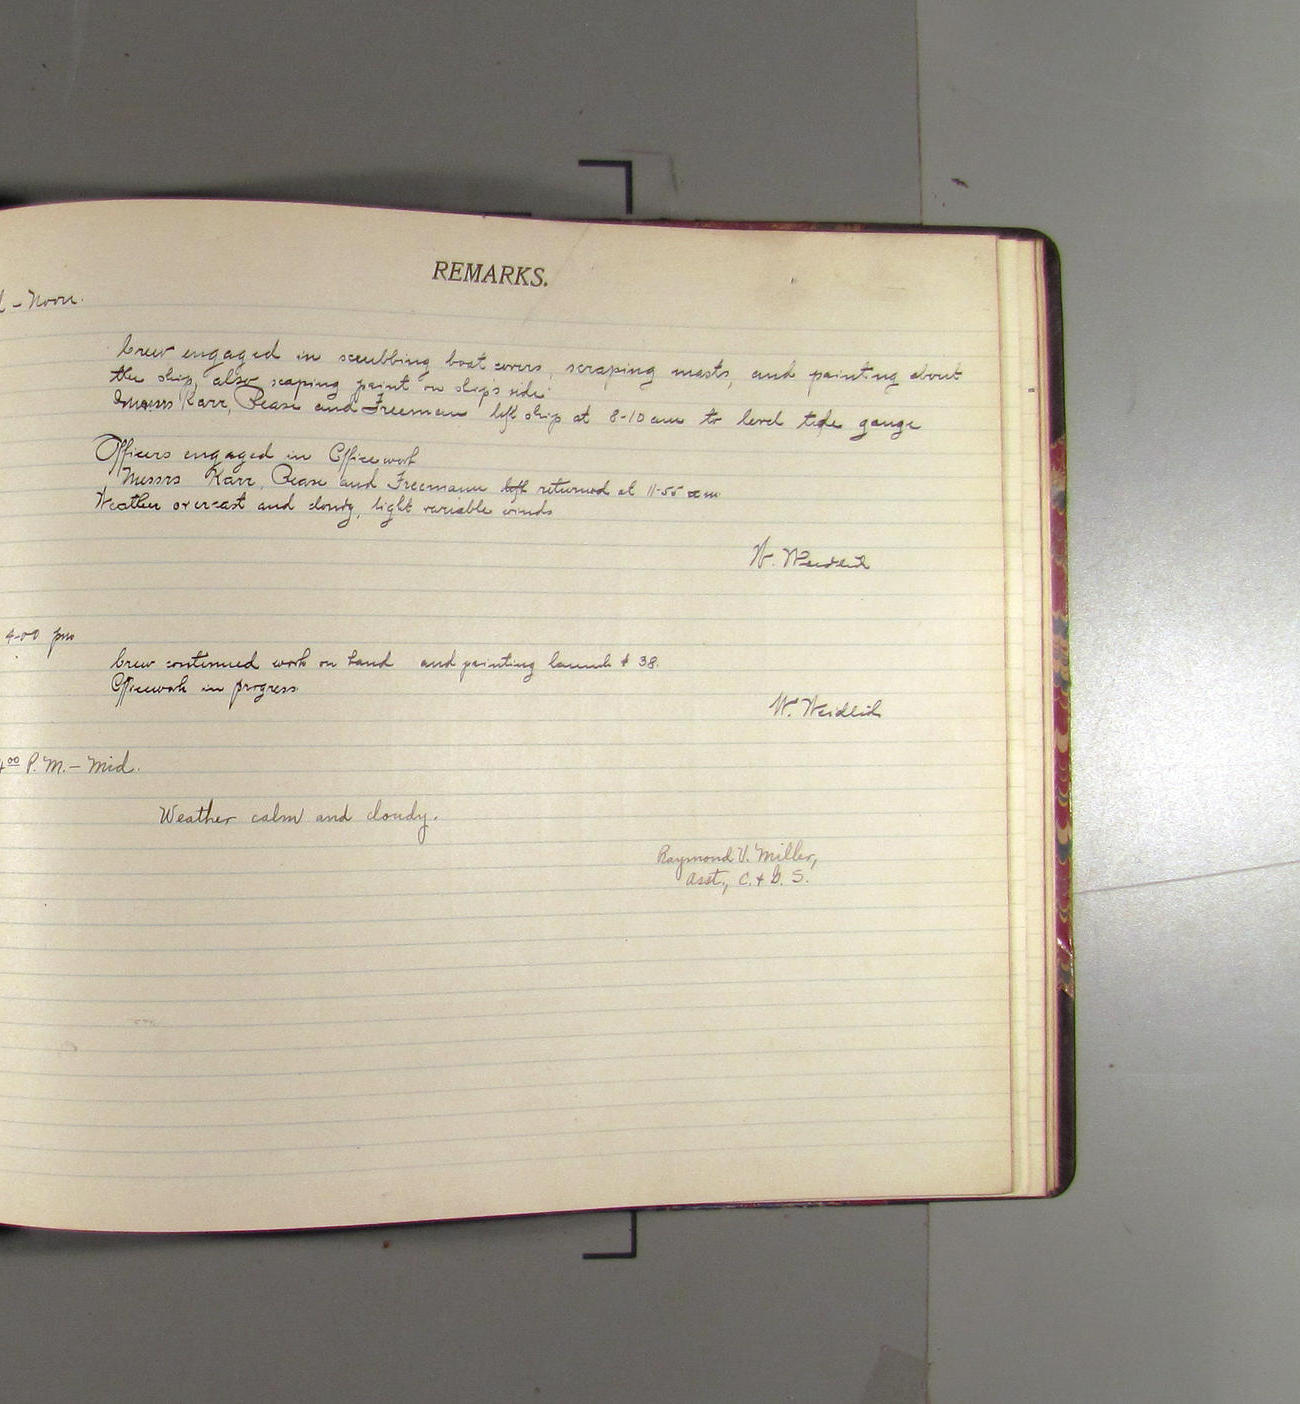 REMARKS.
- Noon.
Crew engaged in scrubbing boat covers, scraping masts, and painting about
the ship, also scaping paint on ship's side
Messrs Karr, Pease and Freeman left ship at 8-10 am to level tide gauge
Officers engaged in Officework
Messrs Karr, Pease and Freemann left returned at 11-55 am
Weather overcast and cloudy, light variable winds
W. Weidlich
4-00 pm
Crew continued work on hand and painting launch # 38.
Officework in progress
W. Weidlich
4⁰⁰ P.M. - Mid.
Weather calm and cloudy.
Raymond V. Miller,
Asst., C. & G. S.